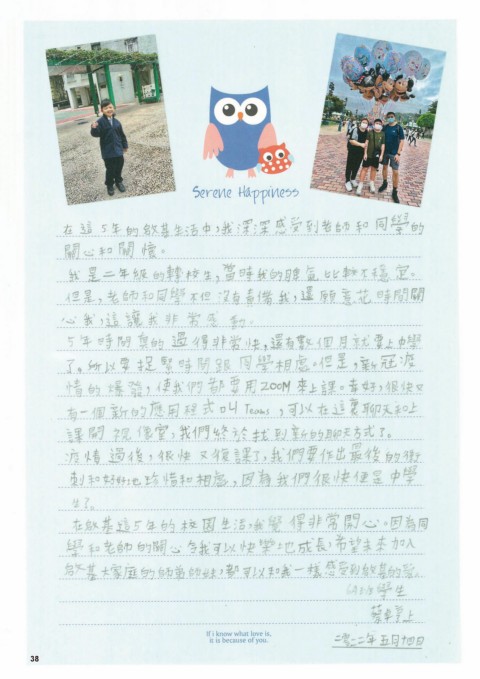 Serene Happiness
在這5年的啟基生活中,我深深感受到老師和同學的
關心和關懷。
我是二年級的轉校生,當時我的脾氣比較不穩定。
但是,老師和同學不但沒有責備我,還願意花時間關
心我,這讓我非常感動。
5年時間真的過得非常快,還有數個月就要上中學
了。所以要捉緊時間跟同學相處。但是,新冠疫
情的爆發,使我們都要用ZOOM來上課。幸好,很快又
有一個新的應用程式叫Teams,可以在這裏聊天和上
課開視像室,我們終於找到新的聊天方式了。
疫情過後,很快又復課了,我們要作出最後的衝
刺和好好地珍惜和相處,因為我們很快便是中學
生了。
在啟基這5年的校園生活,我覺得非常開心。因為同
學和老師的關心令我可以快樂地成長,希望未來加入
啟基大家庭的師弟師妹,都可以和我一樣感受到啟基的愛。
學生
上
二零二二年五月十四日
If i know what love is,
it is because of you.
38